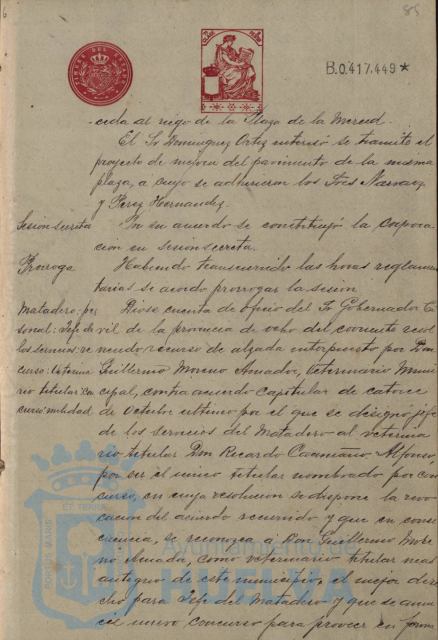 85
B.0.417.449*
ceda al riego de la Plaza de la Merced.
El Sr Dominguez Ortiz interesó se tramite el
proyecto de mejora del pavimento de la misma
plaza, á cuyo se adhirieron los Sres Narvaez
y Perez Hernandez.
Sesion secreta
En su acuerdo se constituyó la Corpora-
cion en sesion secreta.
Prorroga
Habiendo transcurrido las horas reglamen-
tarias se acordo prorrogar la sesion
Matadero: per
sonal: Jefe de
los servicios: re
curso: Veterina
rio titular: con
curso: nulidad
Diose cuenta de oficio del Sr Gobernador Ci-
vil de la provincia de ocho del corriente resol
viendo recurso de alzada interpuesto por Don
Guillermo Moreno Amador, Veterinario Muni
cipal, contra acuerdo capitular de catorce
de Octubre ultimo por el que se designó jefe
de los servicios del Matadero al veterina
rio titular Don Ricardo Caamaño Alfonso,
por ser el unico titular nombrado por con
curso, en cuya resolucion se dispone la revo
cacion del acuerdo recurrido y que en conse
cuencia, se reconozca á Don Guillermo More
no Amador, como veterinario titular mas
antiguo de este municipio, el mejor dere
cho para Jefe del Matadero y que se anun
cie nuevo concurso para proveer en forma
Ayuntamiento de
HUELVA